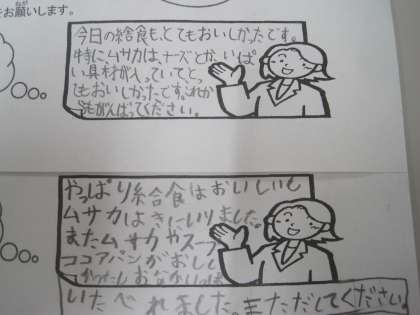 をお願いします。
今日の給食も、とてもおいしかったです。
特にムサカは、チーズとかいっぱ
い具材が入っていて、とっ
てもおいしかったです。これか
らもがんばってください。
やっぱり給食はおいしいも
ムサカはきにいりました。
またムサカやスープ
ココアパンがおいし
かったし お
いたべれました。まただしてください